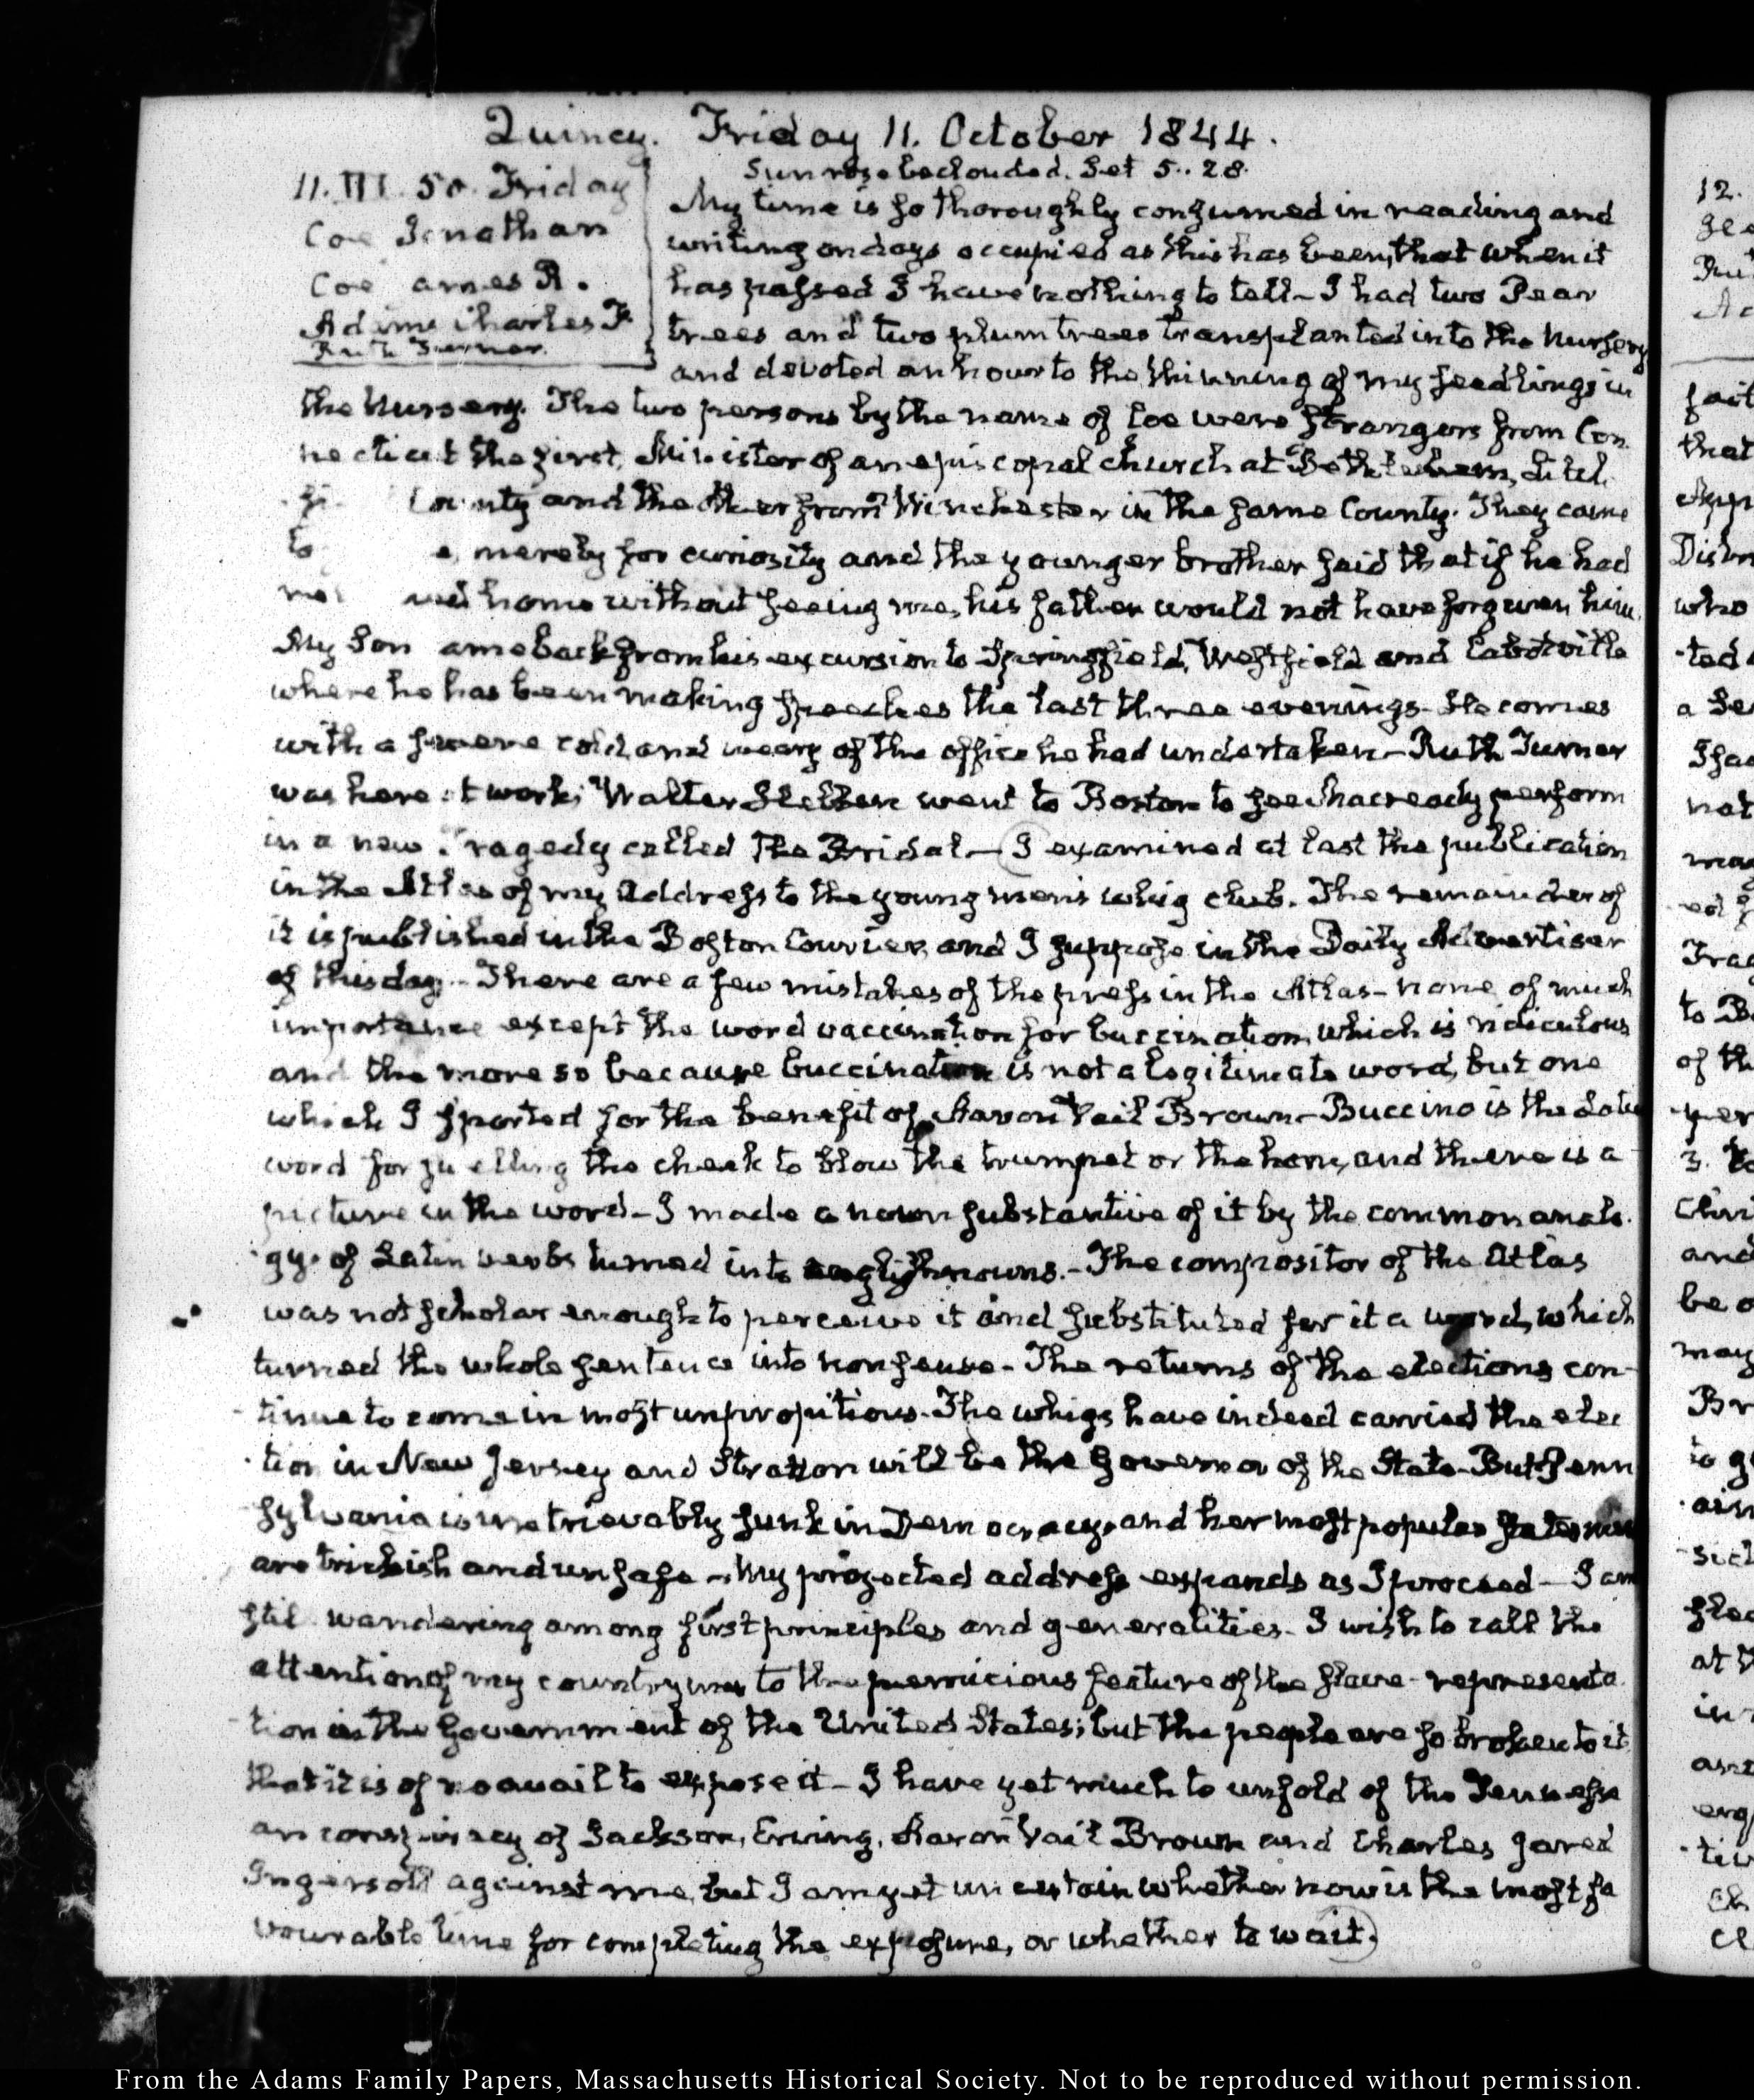 Quincy. Friday 11. October 1844.
Sun rose beclouded. Set 5..28.
11. III. 50. Friday
Coe Jonathan
Coe ames R.
Adams Charles F
Ruth Turner.
My time is so thoroughly consumed in reading and
writing on days occupied as this has been, that when it
has passed I have nothing to tell – I had two Pear
trees and two plum trees transplanted into the Nursery
and devoted an hour to the thinning of my seedlings in
the Nursery. The two persons by the name of Coe were strangers from Con
necticut the first, Minister of an episcopal church at Bethlehem, Litch
fi County and the other from Winchester in the same County. They came
to e, merely for curiosity and the younger brother said that if he had
home without seeing me, his father would not have forgiven him.
My Son ame back from his excursion to Springfield, Westfield and Cabotville
where he has been making speeches the last three evenings. He comes
with a severe cold, and weary of the office he had undertaken – Ruth Turner
was here at work; Walter went to Boston to see Macready perform
in a new Tragedy called The Bridal – I examined at last the publication
in the Atlas of my Address to the young men's whig club. The remainder of
it is published in the Boston Courier, and I suppose in the Daily Advertiser
of this day – There are a few mistakes of the press in the Atlas – none of much
importance except the word vaccination for buccination, which is ridiculous
and the more so because buccination is not a legitimate word, but one
which I sported for the benefit of Aaron Vail Brown – Buccino is the Latin
word for swelling the cheek to blow the trumpet or the horn, and there is a
picture in the word – I made a noun substantive of it by the common analo
gy. of Latin verbs turned into english nouns. – The compositor of the Atlas
was not scholar enough to perceive it and substituted for it a word, which
turned the whole sentence into nonsense – The returns of the elections con-
tinue to come in most unpropitious. The whigs have indeed carried the elec
tion in New Jersey and Stratton will be the Governor of the State – But Penn
sylvania is irretrievably sunk in Democracy, and her most popular
are trickish and unsafe – My projected address expands as I proceed – I am
still wandering among first principles and generalities – I wish to call the
attention of my countrymen to the pernicious feature of the slave-representa
tion in the Government of the United States; but the people are so broken to it
that it is of no avail to expose it – I have yet much to unfold of the Tennesse
an conspiracy of Jackson, Erving, Aaron Vail Brown and Charles Jared
Ingersoll against me, but I am yet uncertain whether now is the most fa
vourable time for completing the exposure, or whether to wait.
12.
fait
that
App
Distr
who
-ted
a Se
not
to B
of th
per
3.
and
be o
may
Br
to g
at t
From the Adams Family Papers, Massachusetts Historical Society. Not to be reproduced without permission.